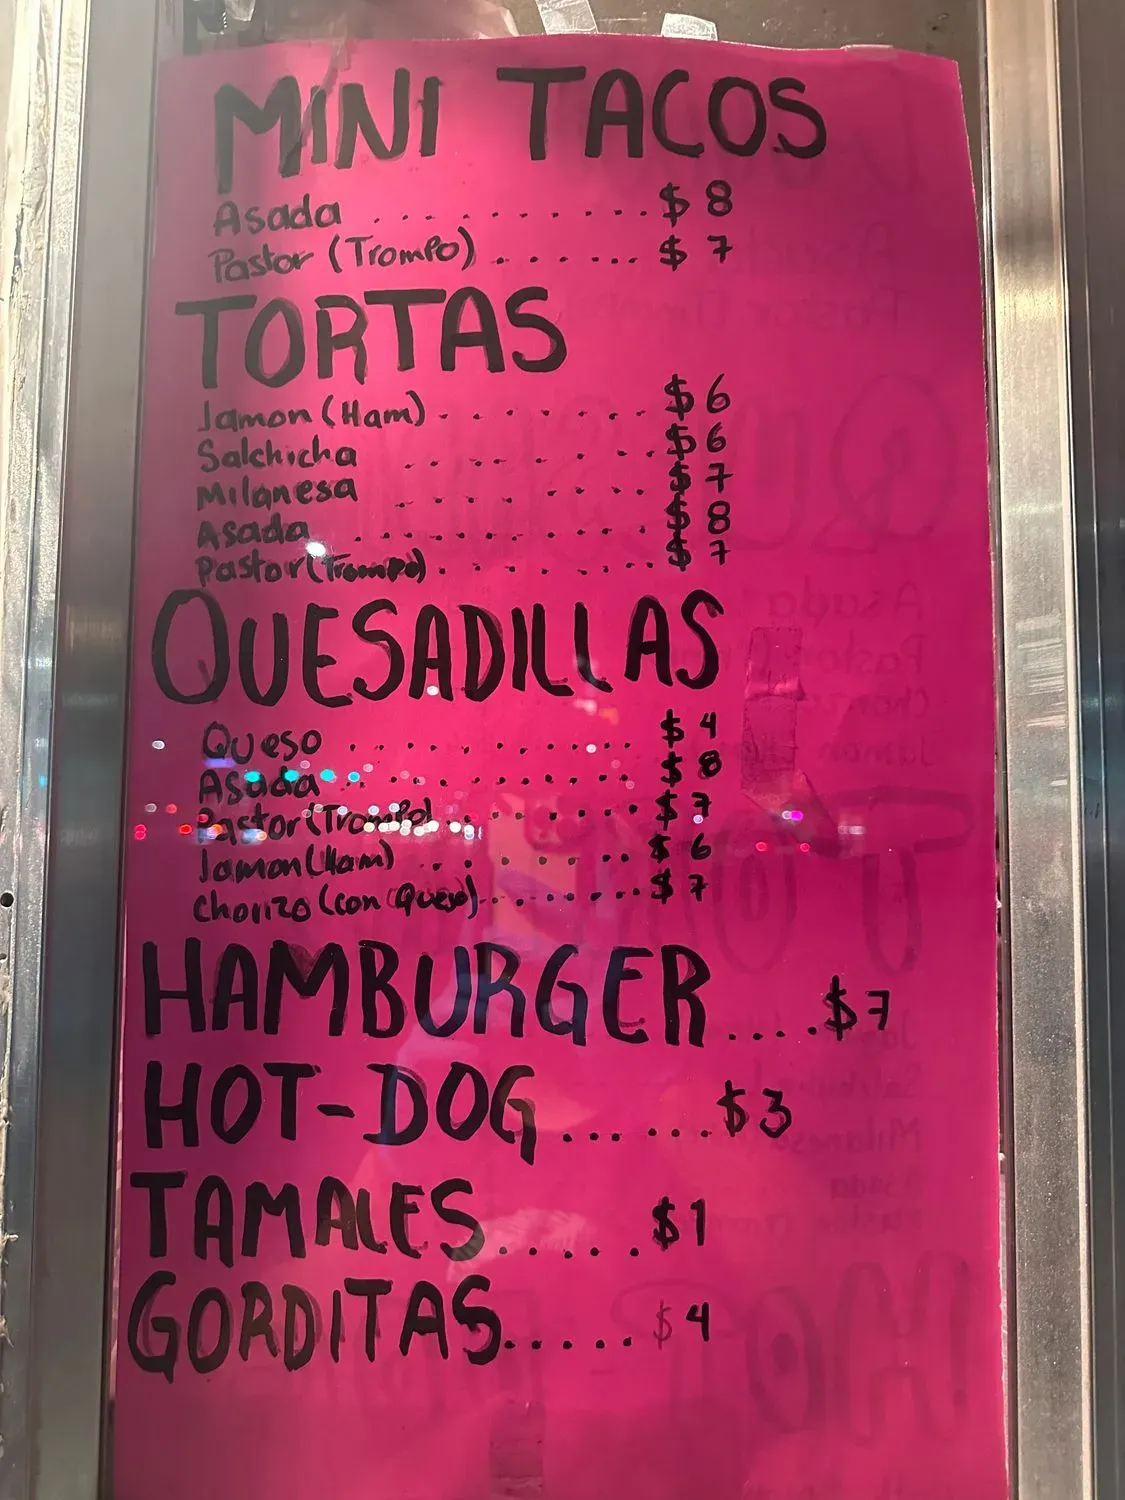 MINI TACOS
Asada ............ $8
Pastor (Trompo) ...... $7
TORTAS
Jamon (Ham) ........ $6
Salchicha ........ $6
Milanesa ....... $7
Asada ......... $8
Pastor (Trompo) ........ $7
QUESADILLAS
Queso ............ $4
Asada .......... $8
Pastor (Trompo) ....... $7
Jamon (Ham) ........ $6
Chorizo (con Queso) ......... $7
HAMBURGER ....$7
HOT-DOG .......$3
TAMALES ......$1
GORDITAS ......$4